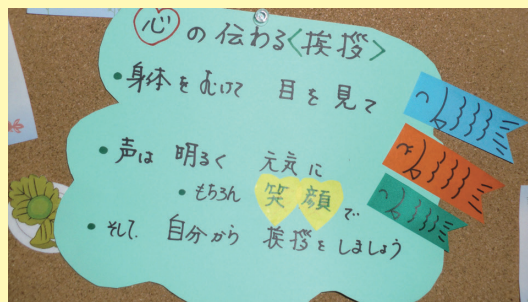 心の伝わる<挨拶>
•身体をむけて 目を見て
•声は 明るく 元気に
•もちろん 笑顔で
•そして 自分から 挨拶をしましょう